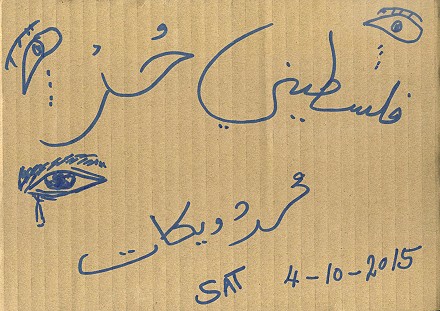 فلسطيني حُرْ
محمد دويكات
SAT 4-10-2015